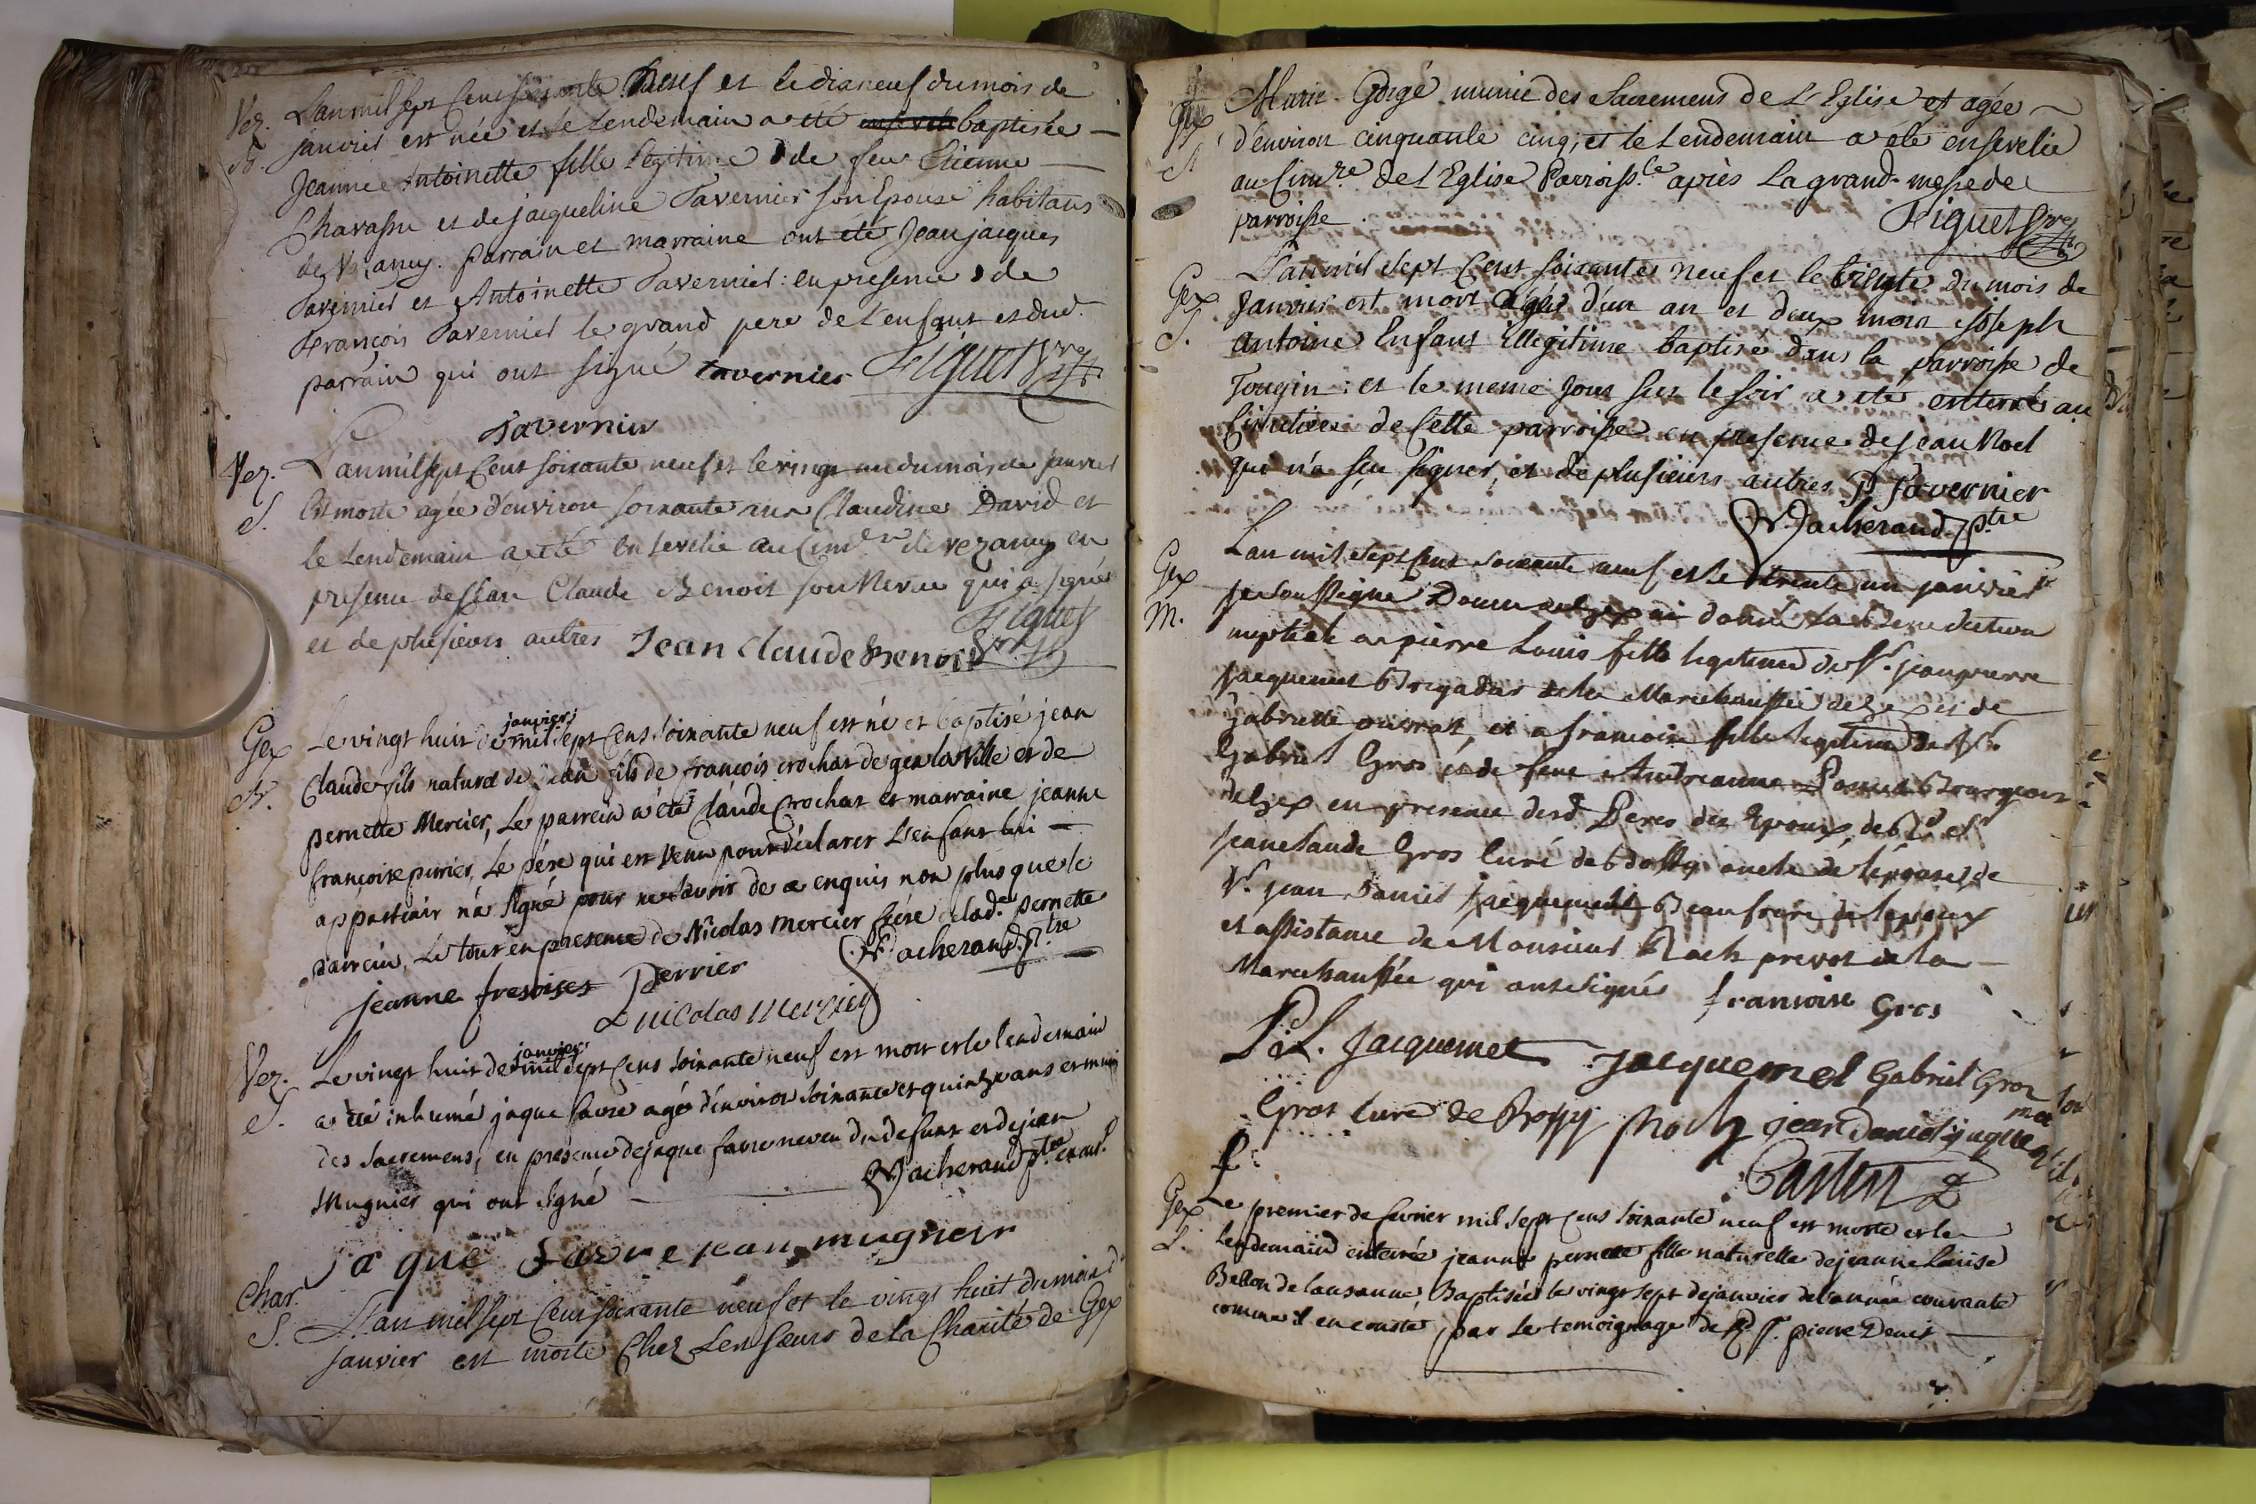 Vez. L'an mil sept Cent soixante Neuf et le dix neuf du mois de
N. janvier est née et le Lendemain a été baptisée
Jeanne Antoinette fille légitime de feu Etienne
Chavassu et de jacqueline Tavernier son Epouse habitans
de Vezancy. parrain et marraine ont été Jean jacques
Tavernier et Antoinette Tavernier: en presence de
François Tavernier le grand pere de L'enfant et dud.
parrain qui ont signé tavernier Figuet Vre
Tavernier
Vez. L'an mil sept Cent soixante neuf et le vingt un du mois de janvier
S. Est morte agée d'environ soixante ans Claudine David et
le Lendemain a été Ensevelie au Cimre de vezancy en
presence de Jean Claude Benoit son Neveu qui a signé
et de plusieurs autres Jean Claude Benoit Figuet Vre
Gex Le vingt huit de janvier mil sept Cens soixante neuf est né et baptisé jean
N. Claude fils naturel de jean fils de françois crochat de gex la ville et de
pernette Mercier, Le parrein a été Claude Crochat et marraine jeanne
françoise perrier, Le père qui est venu pour déclarer L'enfant lui
appartenir n'a signé pour ne savoir de ce enquis non plus que le
parrein, Le tout en presence de Nicolas Mercier frère de lad.e pernette
jeanne fresoises Perrier Vacherand Ptre
Nicolas Mercier
Vez. Le vingt huit de janvier mil sept Cens soixante neuf est mort et le lendemain
S. a été inhumé jaque favre agé d'environ soixante et quinze ans et muni
des Sacremens, en présence de jaque favre neveu du defunt et de jean
Mugnier qui ont signé Vacherand Ptre
jaque favre jean mugneir
Char. L'an mil sept Cent soixante neuf et le vingt huit du mois d
S. janvier est morte Chez Les Sœurs de la Charité de Gex
Gex Marie Gorgé munie des Sacremens de L'Eglise et agée
S. d'environ cinquante cinq, et le Lendemain a été ensevelie
au Cimre de L'Eglise Parroiss.le après La grand-messe de
parroisse. Figuet Vre
Gex L'an mil sept Cent soixante neuf et le trente du mois de
S. Janvier est mort agé d'un an et deux mois Joseph
Antoine Enfant illegitime baptisé dans la parroisse de
Tougin: et le meme jour sur le soir a été enterré au
Cimetiere de Cette parroisse en presence de Jean Noel
qui n'a sçu signer, et de plusieurs autres P Tavernier
Vacherand Ptre
Gex L'an mil sept Cent soixante neuf et le trente un janvier
M. je soussigné Doyen de gex ai donné la Benediction
nuptiale a pierre Louis fils legitime de Sr. jean pierre
Jacquemet Brigadier de la Marechaussée de Gex et de
gabrielle et a francoise fille legitime de Sr.
Gabriel Gros et de feue Bourgeois
de Gex en presence desd Peres des Epoux, de Rd Sr
jean claude Gros Curé de oncle de l'epouse, de
Sr jean Daniel Jacquemet Beaufrère de l'epoux
et assistance de Monsieur Roch prevot de la
Marechaussée qui ont signés francoise Gros
P. L. Jacquemet jacquemet Gabriel Gros
Gros Curé de Rochz jean Daniel jaque
Castin
Gex Le premier de fevrier mil sept Cens soixante neuf est morte et le
S. Lendemain enterrée jeanne pernette fille naturelle de jeanne Louise
Bellon de Lausanne, Baptisée le vingt sept de janvier de l'année courante
comme il en conste, par Le temoignage de Rd Sr. pierre Denis